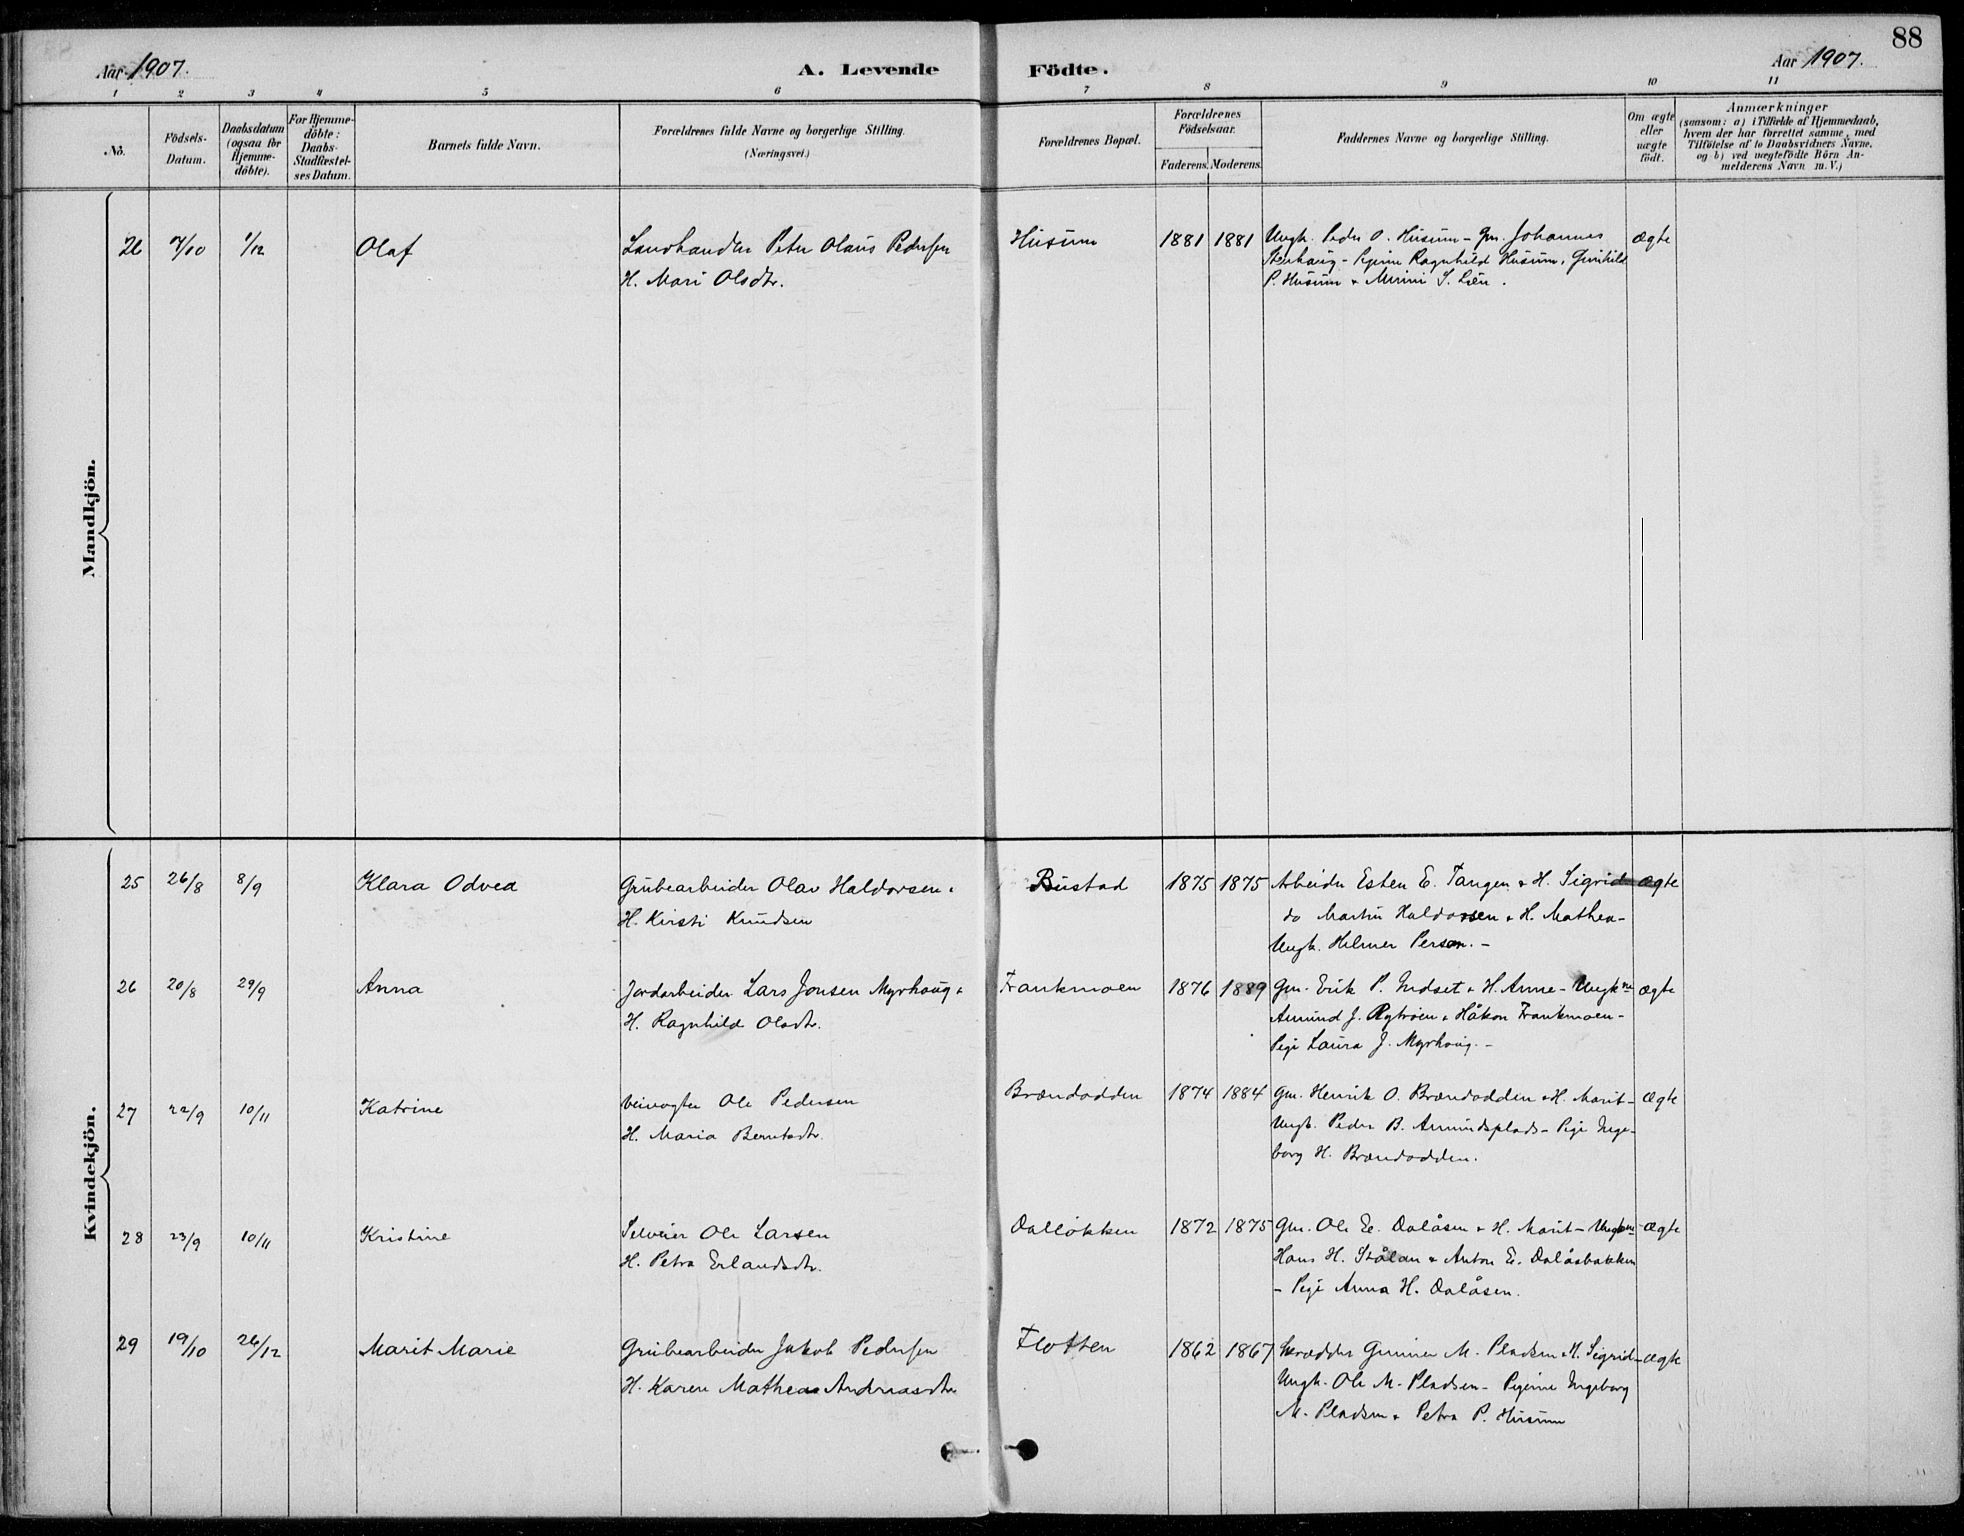 88
Aar 1907.
A. Levende Födte.
Aar 1907.
1 2 3 4 5 6 7 8 9 10 11
No.
Födsels-Datum.
Daabsdatum (ogsaa for Hjemme-döbte).
For Hjemme-döbte: Daabs-Stadfæstel-ses Datum.
Barnets fulde Navn.
Forældrenes fulde Navne og borgerlige Stilling. (Næringsvei.)
Forældrenes Bopæl.
Forældrenes Födselsaar.
Faderens. Moderens.
Faddernes Navne og borgerlige Stilling.
Om ægte eller uægte födt.
Anmærkninger
(saasom: a) i Tilfælde af Hjemmedaab,
hvem der har forrettet samme, med
Tilföielse af to Daabsvidners Navne,
og b) ved uægtefödte Börn An-
melderens Navn m.V.)
Mandkjön.
26 /10 1/12 Olaf Landhandler Peter Olaus Pedersen Husum 1881 1881 Ungk. Peder O. Husum - Gm. Johannes ægte
H. Mari Olsdtr. - Pigerne Ragnhild Husum, Gunhild
P. Husum & S. Lien.
Kvindekjön.
25 26/8 8/9 Klara Odvea Grubearbeider Olav Haldorsen & Bustad 1875 1875 Arbeider Esten E. Tangen & H. Sigrid ægte
H. Kirsti Knudsen do Martin Haldorsen & H. Mathea-
Ungk. Helmer Person.-
26 20/8 29/9 Anna Jordarbeider Lars Jonsen Myrhoug & Frankmoen 1876 1889 Gm. Erik P. Indset & H. Anne - Ungkne ægte
H. Ragnhild Olsdtr. Amund J. Rytroen & Håkon Frankmoen-
Pige Laura J. Myrhoug.-
27 22/9 10/11 Katrine Veivogter Ole Pedersen Brændodden 1874 1884 Gm. Henrik O. Brændodden & H. Marit- ægte
H. Maria Berntsdtr. Ungk. Peder B. Amundsplads - Pige Inge-
borg H. Brændodden.
28 23/9 10/11 Kristine Selveier Ole Larsen Dalløkken 1872 1875 Gm. Ole E. Dalåsen & H. Marit - Ungkne ægte
H. Petra Erlandsdtr. Hans H. Stålan & Anton E. Dalåsbakken
- Pige Anna H. Dalåsen.
29 19/10 26/12 Marit Marie Grubearbeider Jakob Pedersen Flotten 1862 1867 Skrædder Gunner M. Pladsen & H. Sigrid- ægte
H. Karen Mathea Andreasdtr. Ungk. Ole M. Pladsen - Pigerne Ingeborg
M. Pladsen & Petra P. Husum